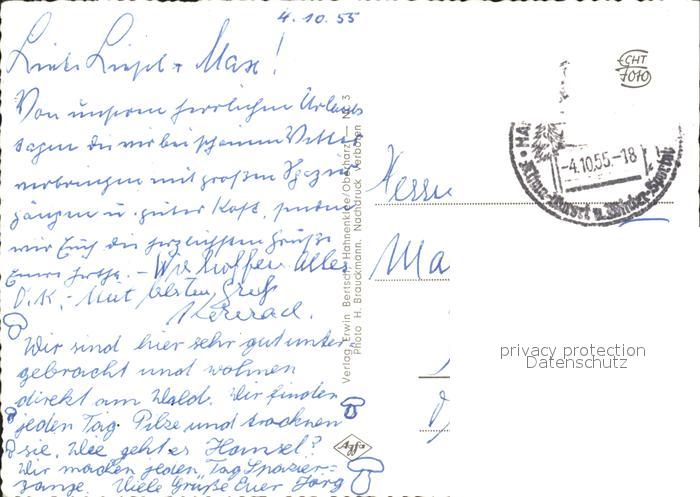 4.10.55
Liebe Liesel + Max!
Von unseren herrlichen Urlaubs
tagen die wir bei schönem Wetter
verbringen mit großen Spazier
gängen u. guter Kost, senden
wir Euch die herzlichsten Grüße
Eure - Wir hoffen alles
O.K. - Mit besten Gruß
Konrad.
Wir sind hier sehr gut unter-
gebracht und wohnen
direkt am Wald. Wir finden
jeden Tag Pilze und trocknen
sie. Wie geht es Hansel?
Wir machen jeden Tag Spazier=
gänge Viele Grüße Euer Jörg
Verlag Erwin Bertsch, Hahnenklee/Oberharz — Nr. 3
Photo H. Brauckmann. Nachdruck verboten
Agfa
Herrn
Ma
ECHT
FOTO
HA
-4.10.55.-18
Klima-Kurort u. Winter-Sportpl.
privacy protection
Datenschutz